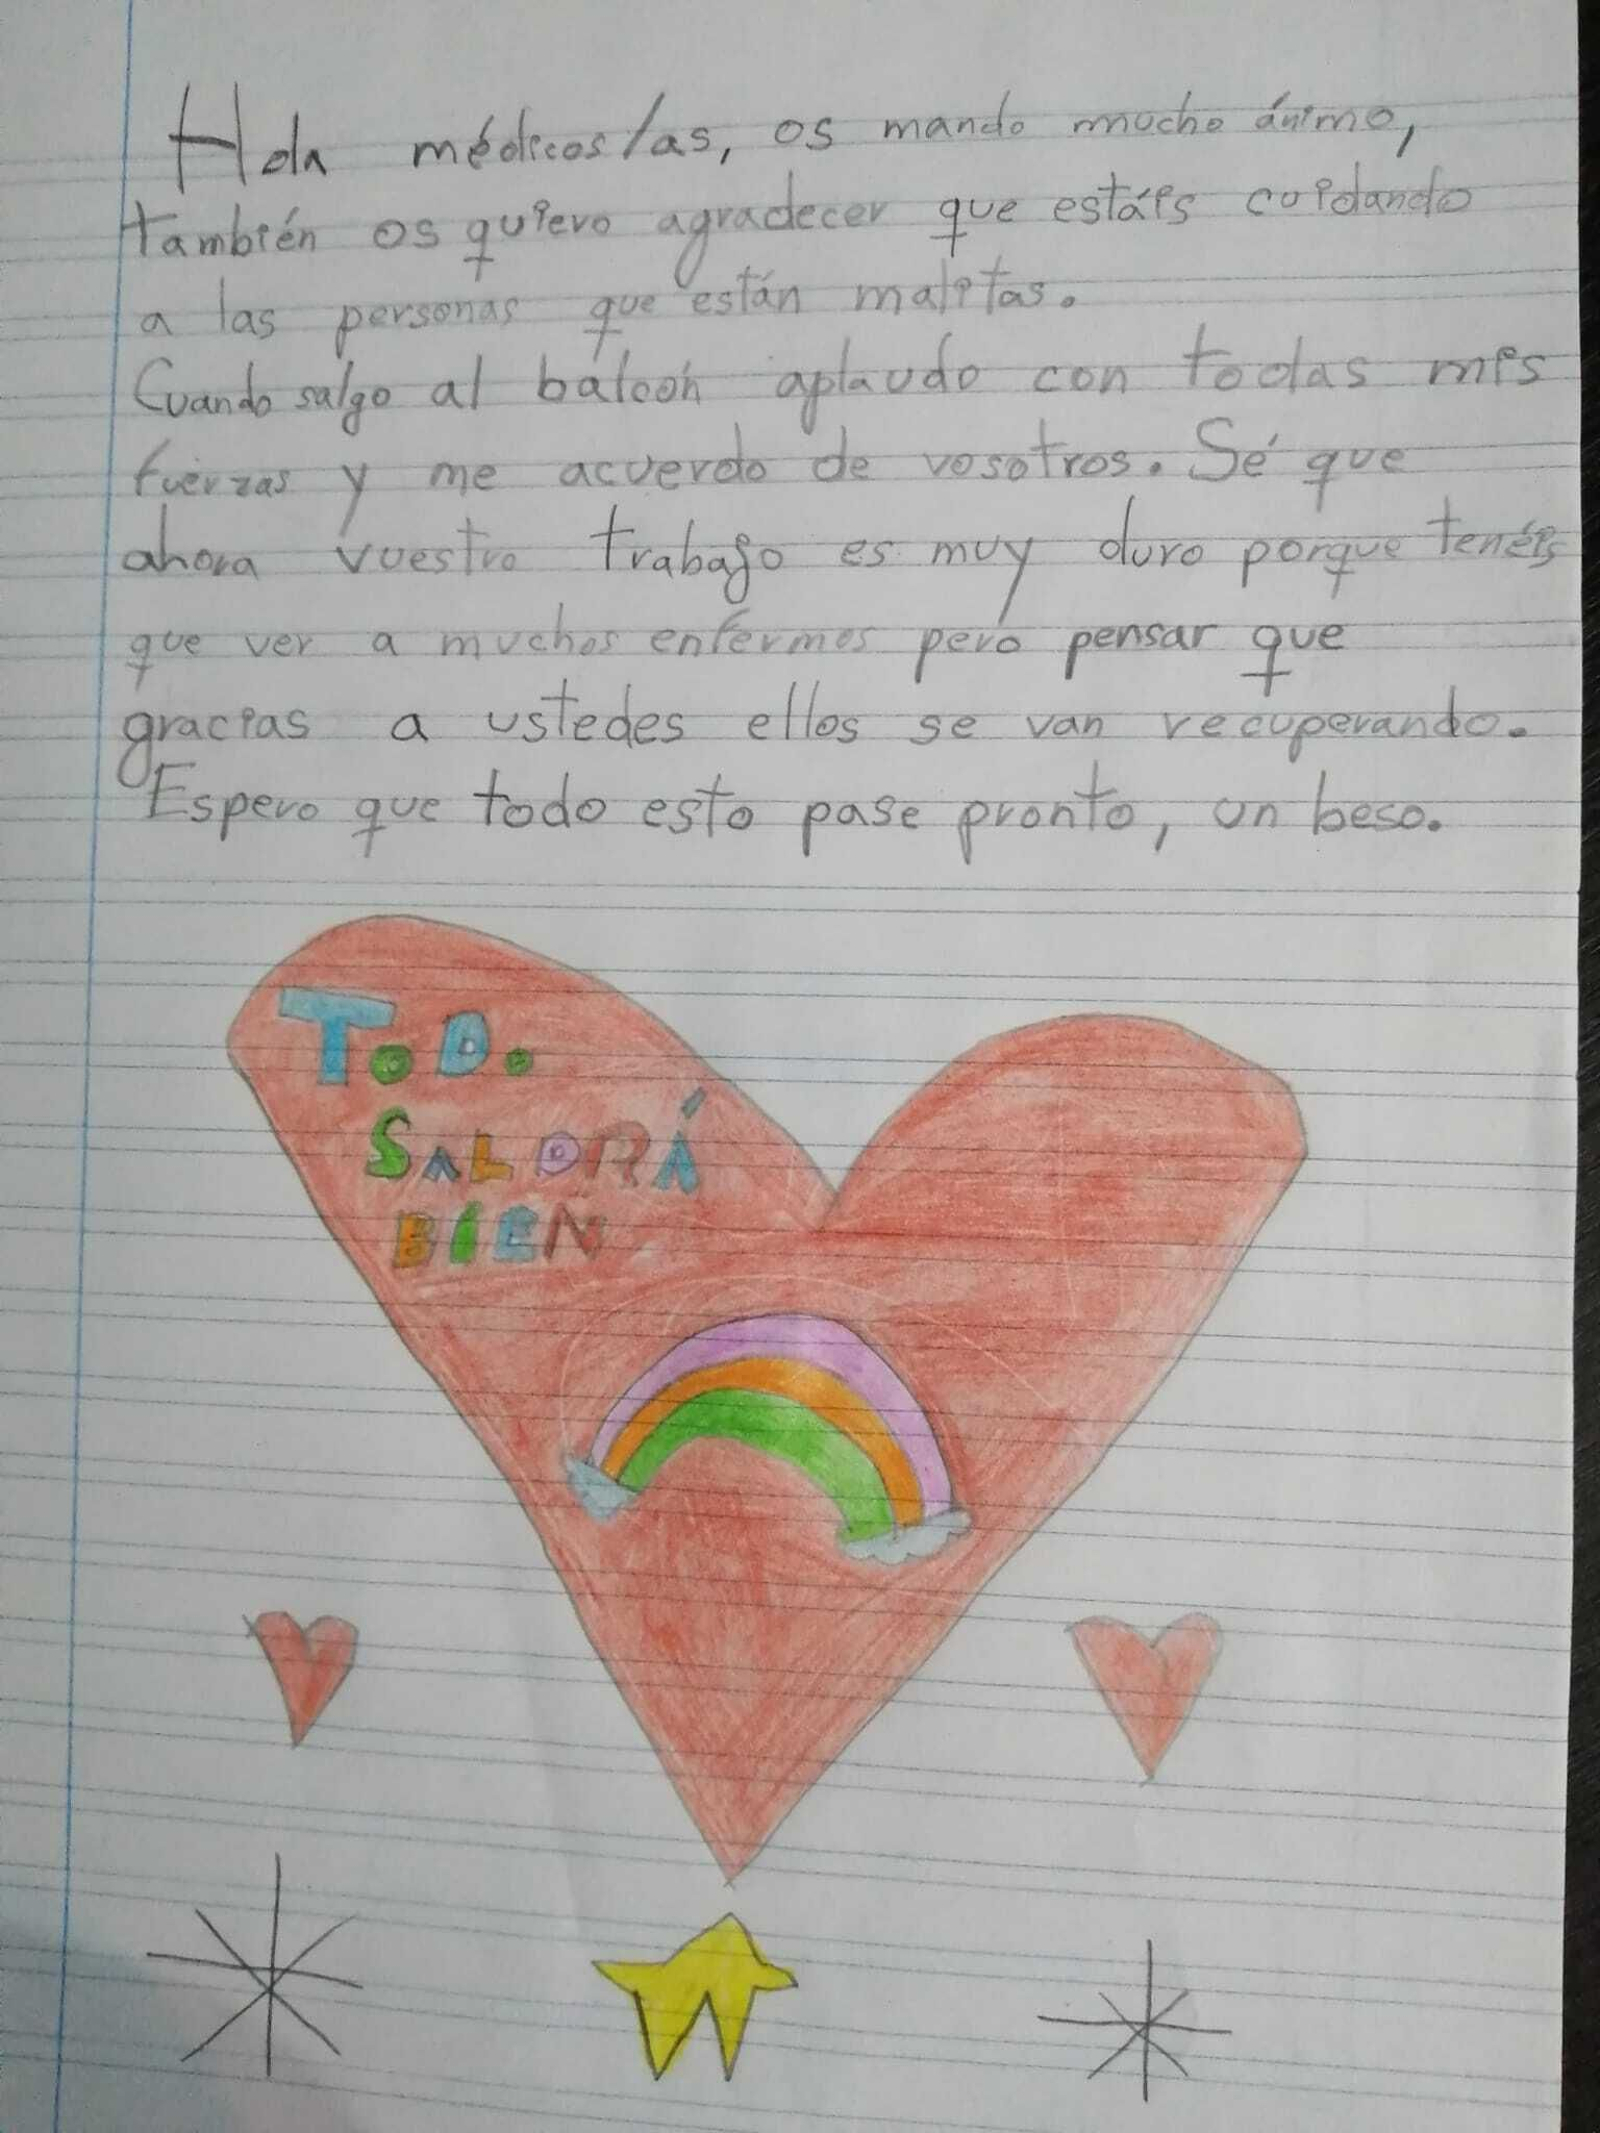 Hola médicos/as, os mando mucho ánimo,
también os quiero agradecer que estáis cuidando
a las personas que están malitas.
Cuando salgo al balcón aplaudo con todas mis
fuerzas y me acuerdo de vosotros. Sé que
ahora vuestro trabajo es muy duro porque tenéis
que ver a muchos enfermos pero pensar que
gracias a ustedes ellos se van recuperando.
Espero que todo esto pase pronto, un beso.
TODO
SALDRÁ
BIEN